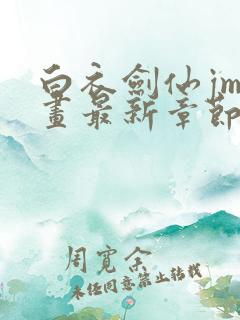 白衣劍仙jm
畫最新章節
周寬余
未經同意禁止轉載